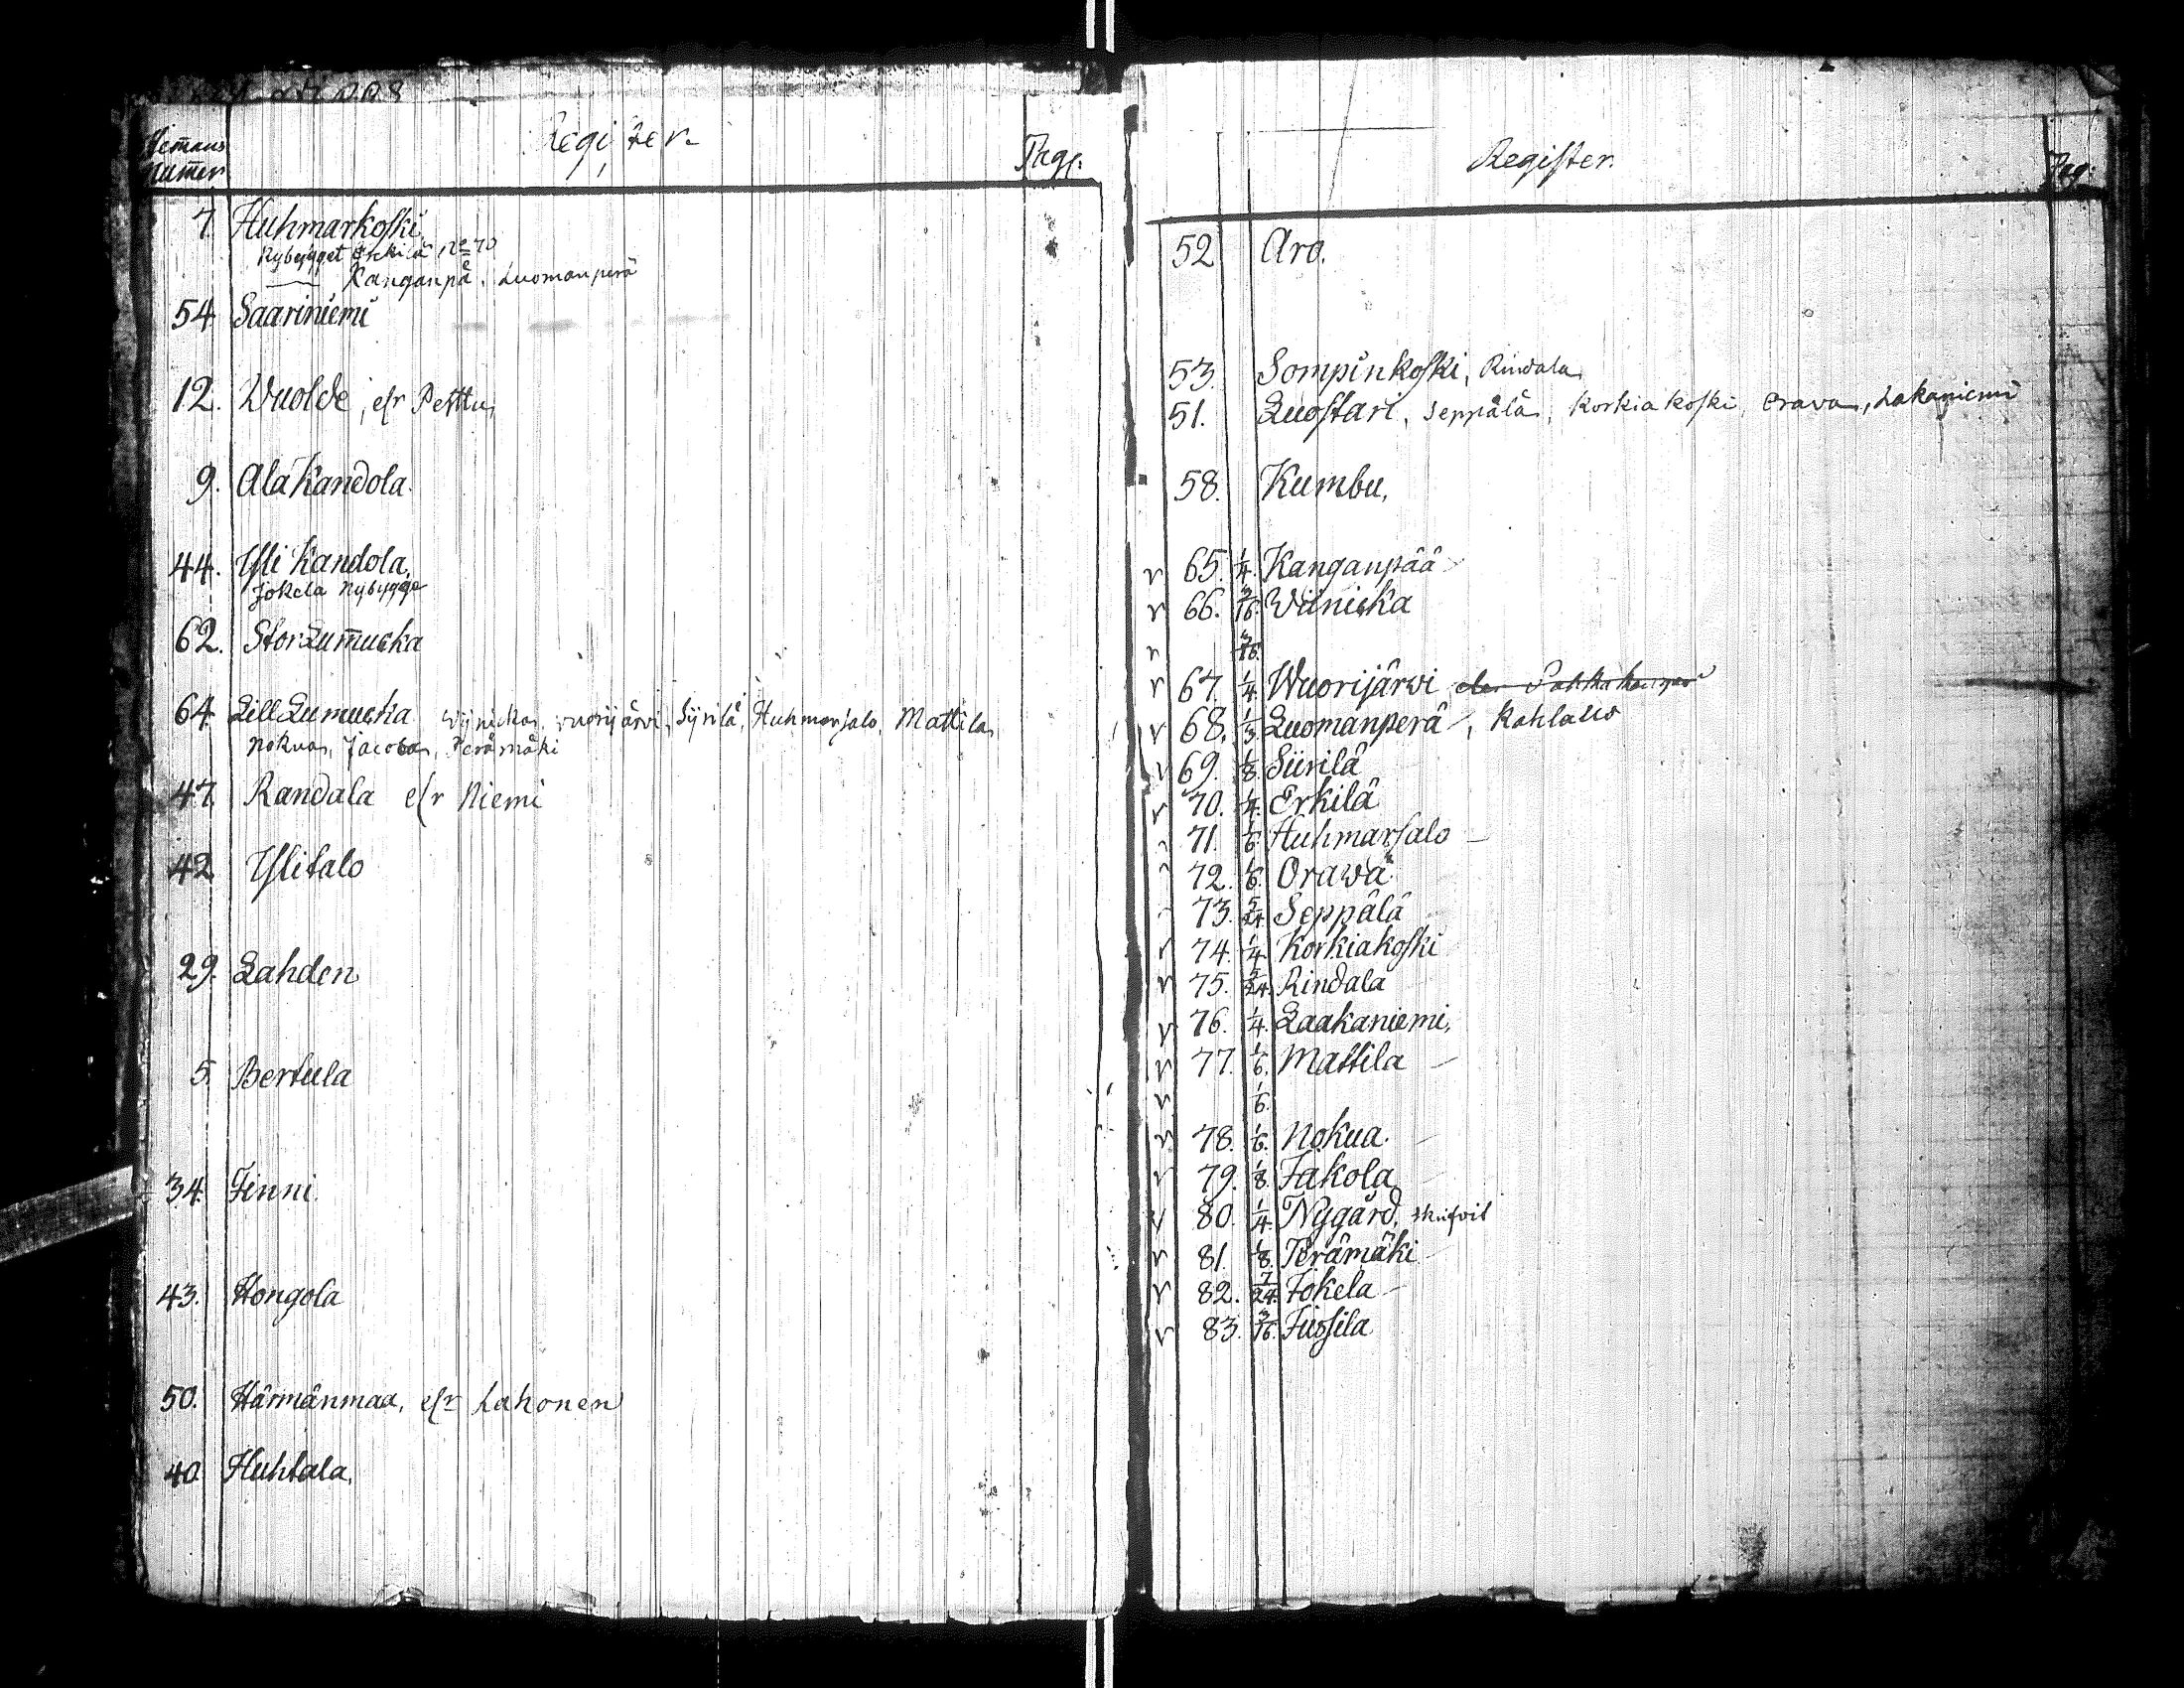 Hemans Numer
Register
Pag:
7. Huhmarkoski
Nybygget Erkilä No 70
Kanganpä. Luomanperä
54. Saariniemi
12. Wuolde, elr Perttu
9. Ala Kandola.
44. Ylli Kandola.
Jokela Nybygge
62. Stor Lum̄ucka
64. Lill Lumucka Wijnicka, vuorijärvi, Sijrilä, Huhmarsalo, Mattila,
Nokua, Jacoba, Perämäki
47. Randala elr Niemi
42. Ylitalo
29. Lahden
5. Bertula
34. Finni.
43. Hongola
50. Härmänmaa, elr Lahonen
40. Huhtala.
Register.
Pag:
52 Aro.
53. Sompinkoski, Rindala
51. Luostari, Seppälä, Korkiakoski, Orava, Lakaniemi
58. Kumbu,
65. 1/4. Kanganpää
66. 3/16. Wiinicka
3/16.
67. 1/4. Wuorijärwi
68. 1/3. Luomanperä, Kahlaus
69. 1/8. Siirilä
70. 1/4. Erkilä
71. 1/6. Huhmarsalo
72. 1/6. Orawa
73. 5/24. Seppälä
74. 1/4. Korkiakoski
75. 5/24. Rindala
76. 1/4. Laakaniemi,
77. 1/6. Mattila
1/6.
78. 1/6. Nokua.
79. 1/8. Jakola
80. 1/4. Nygård,
81. 1/8. Perämäki
82. 7/24. Jokela
83. 3/16. Jussila